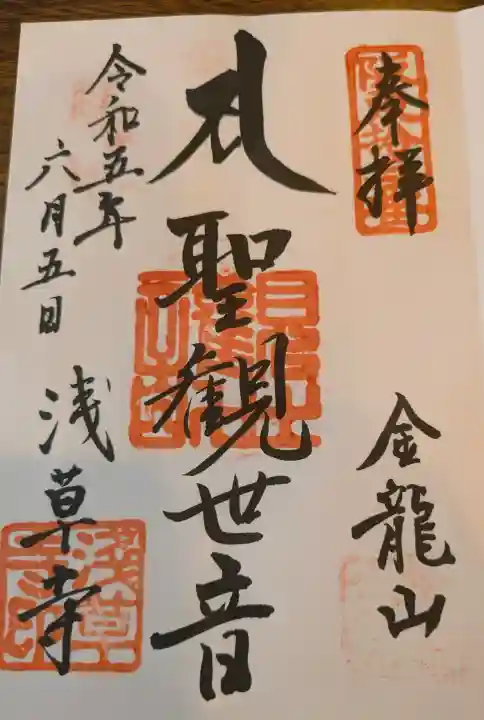 奉拝
金龍山
聖観世音
令和五年
六月五日
浅草寺
浅草寺